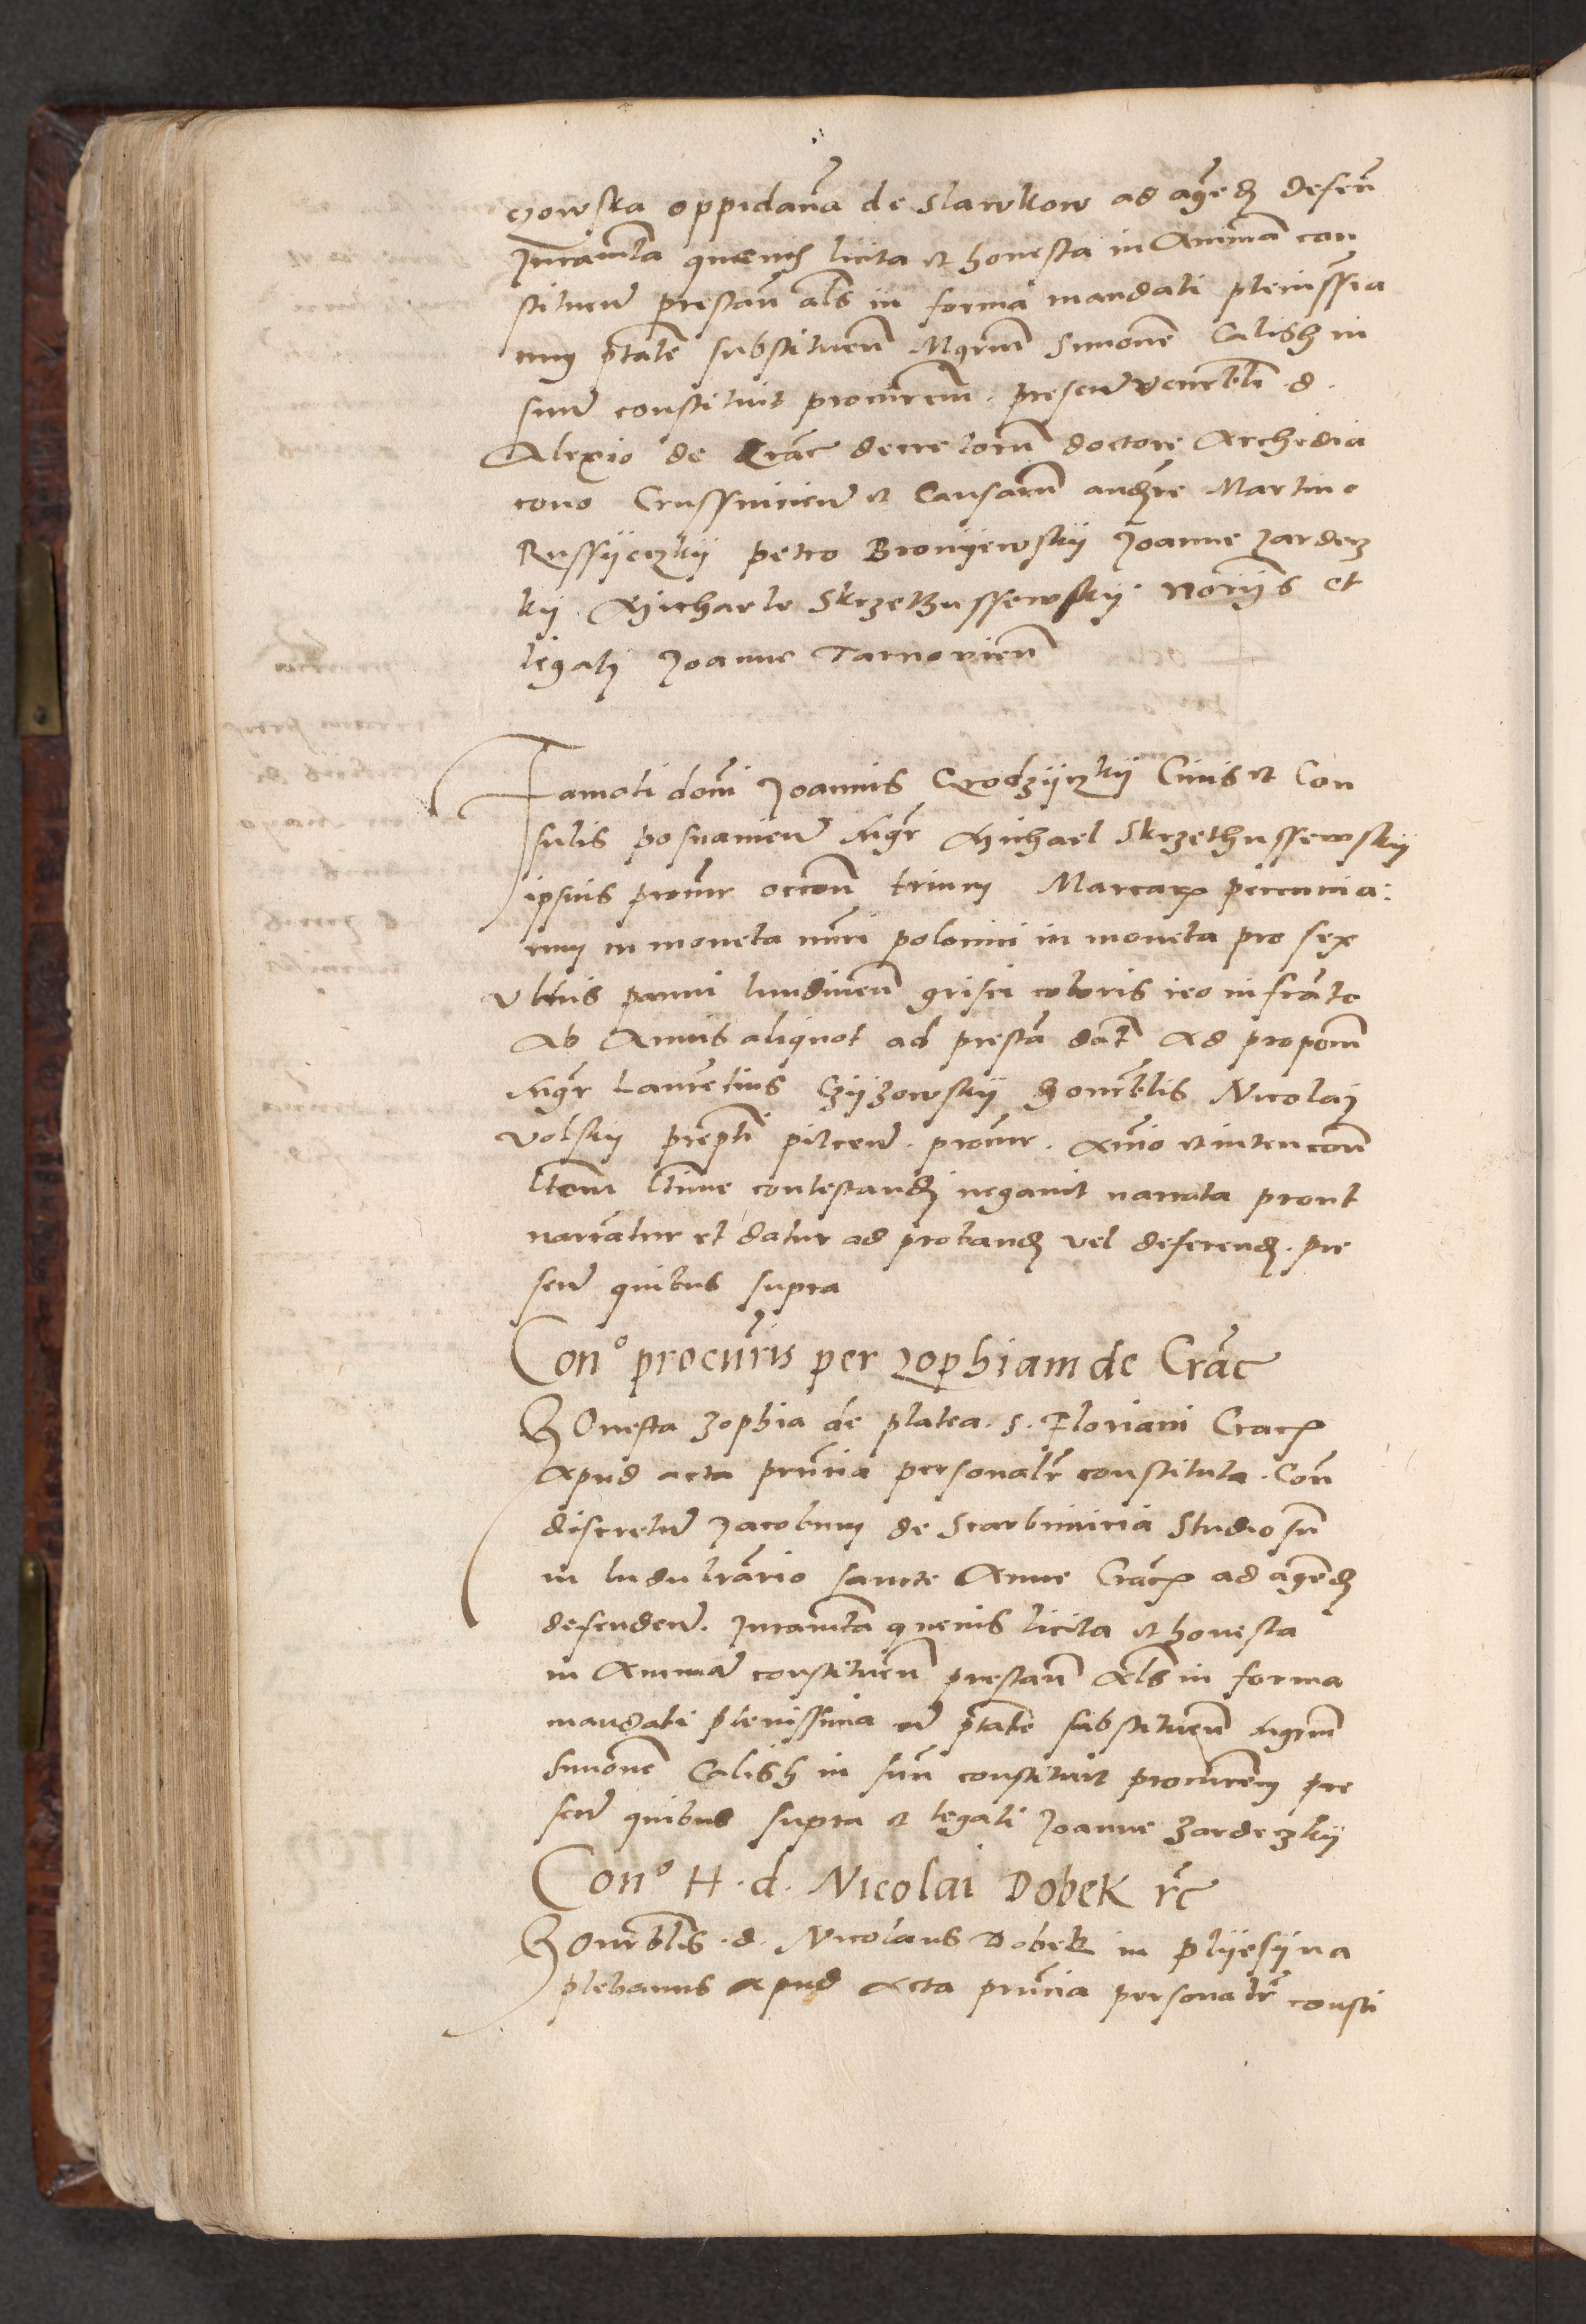 czowska oppidana de Slawkow ad agēd defen̄
Juramta quevis licita et honesta in Animā con
stituen̄ prestan̄ als in forma mandati plenissīa
cum ptate substituen̄ Mgrum Simonē Calish in
suum constituit procurem. presen̄ venerbli d.
Alexio de Crac̄ decretorum doctore Archidia
cono Crussvicien̄ et Causarum auditre Martino
Russyeczky petro Bronyewsky Joanne Zardecz
ky. Michaele Skrzethussewsky. Norijs et
legali Joanne Tarnovien̄
Famati domi Joannis Grodzyczky Civis et Con
sulis posnanien̄ Mgr Michael Skrzethussewsky
ipsius procur occom̄ trium Marcarum pecunia:
rum in moneta nūri polonici in moneta pro sex
ulnis panni lundinen̄ grisei coloris reo infrato
Ab Annis aliquot ad prestā dat Ad proponm
Mgr Laurētius Czyzowsky honerblis Nicolaj
volsky prepti pilcen̄. procur. Animo et intencom
litem ltime contestandi negavit narrata prout
narrātur et datur ad proband vel deferend. pre
sen̄ quibus supra
Con° procuris per Zophiam de Crac̄
HOnesta Zophia de platea. S. Floriani Crac
Apud acta prūcia personalr constituta. Con̄
discretum Jacobum de Scarbimiria Studiosum
in ludu lrario sancte Anne Crac ad agēd
defenden̄. Juramta quevis licita et honesta
in Animā constituen̄ prestan̄ Als in forma
mandati plenissima cum ptate substituen̄ Mgrum
Simonē Calish in suum constituit procurem pre
sen̄ quibus supra et legali Joanne Zardeczky
Con° H. d. Nicolai Dobek rc̄
HOnerblis. d. Nicolaus Dobek in plyesyna
plebanus Apud Acta prūcia personalr consti